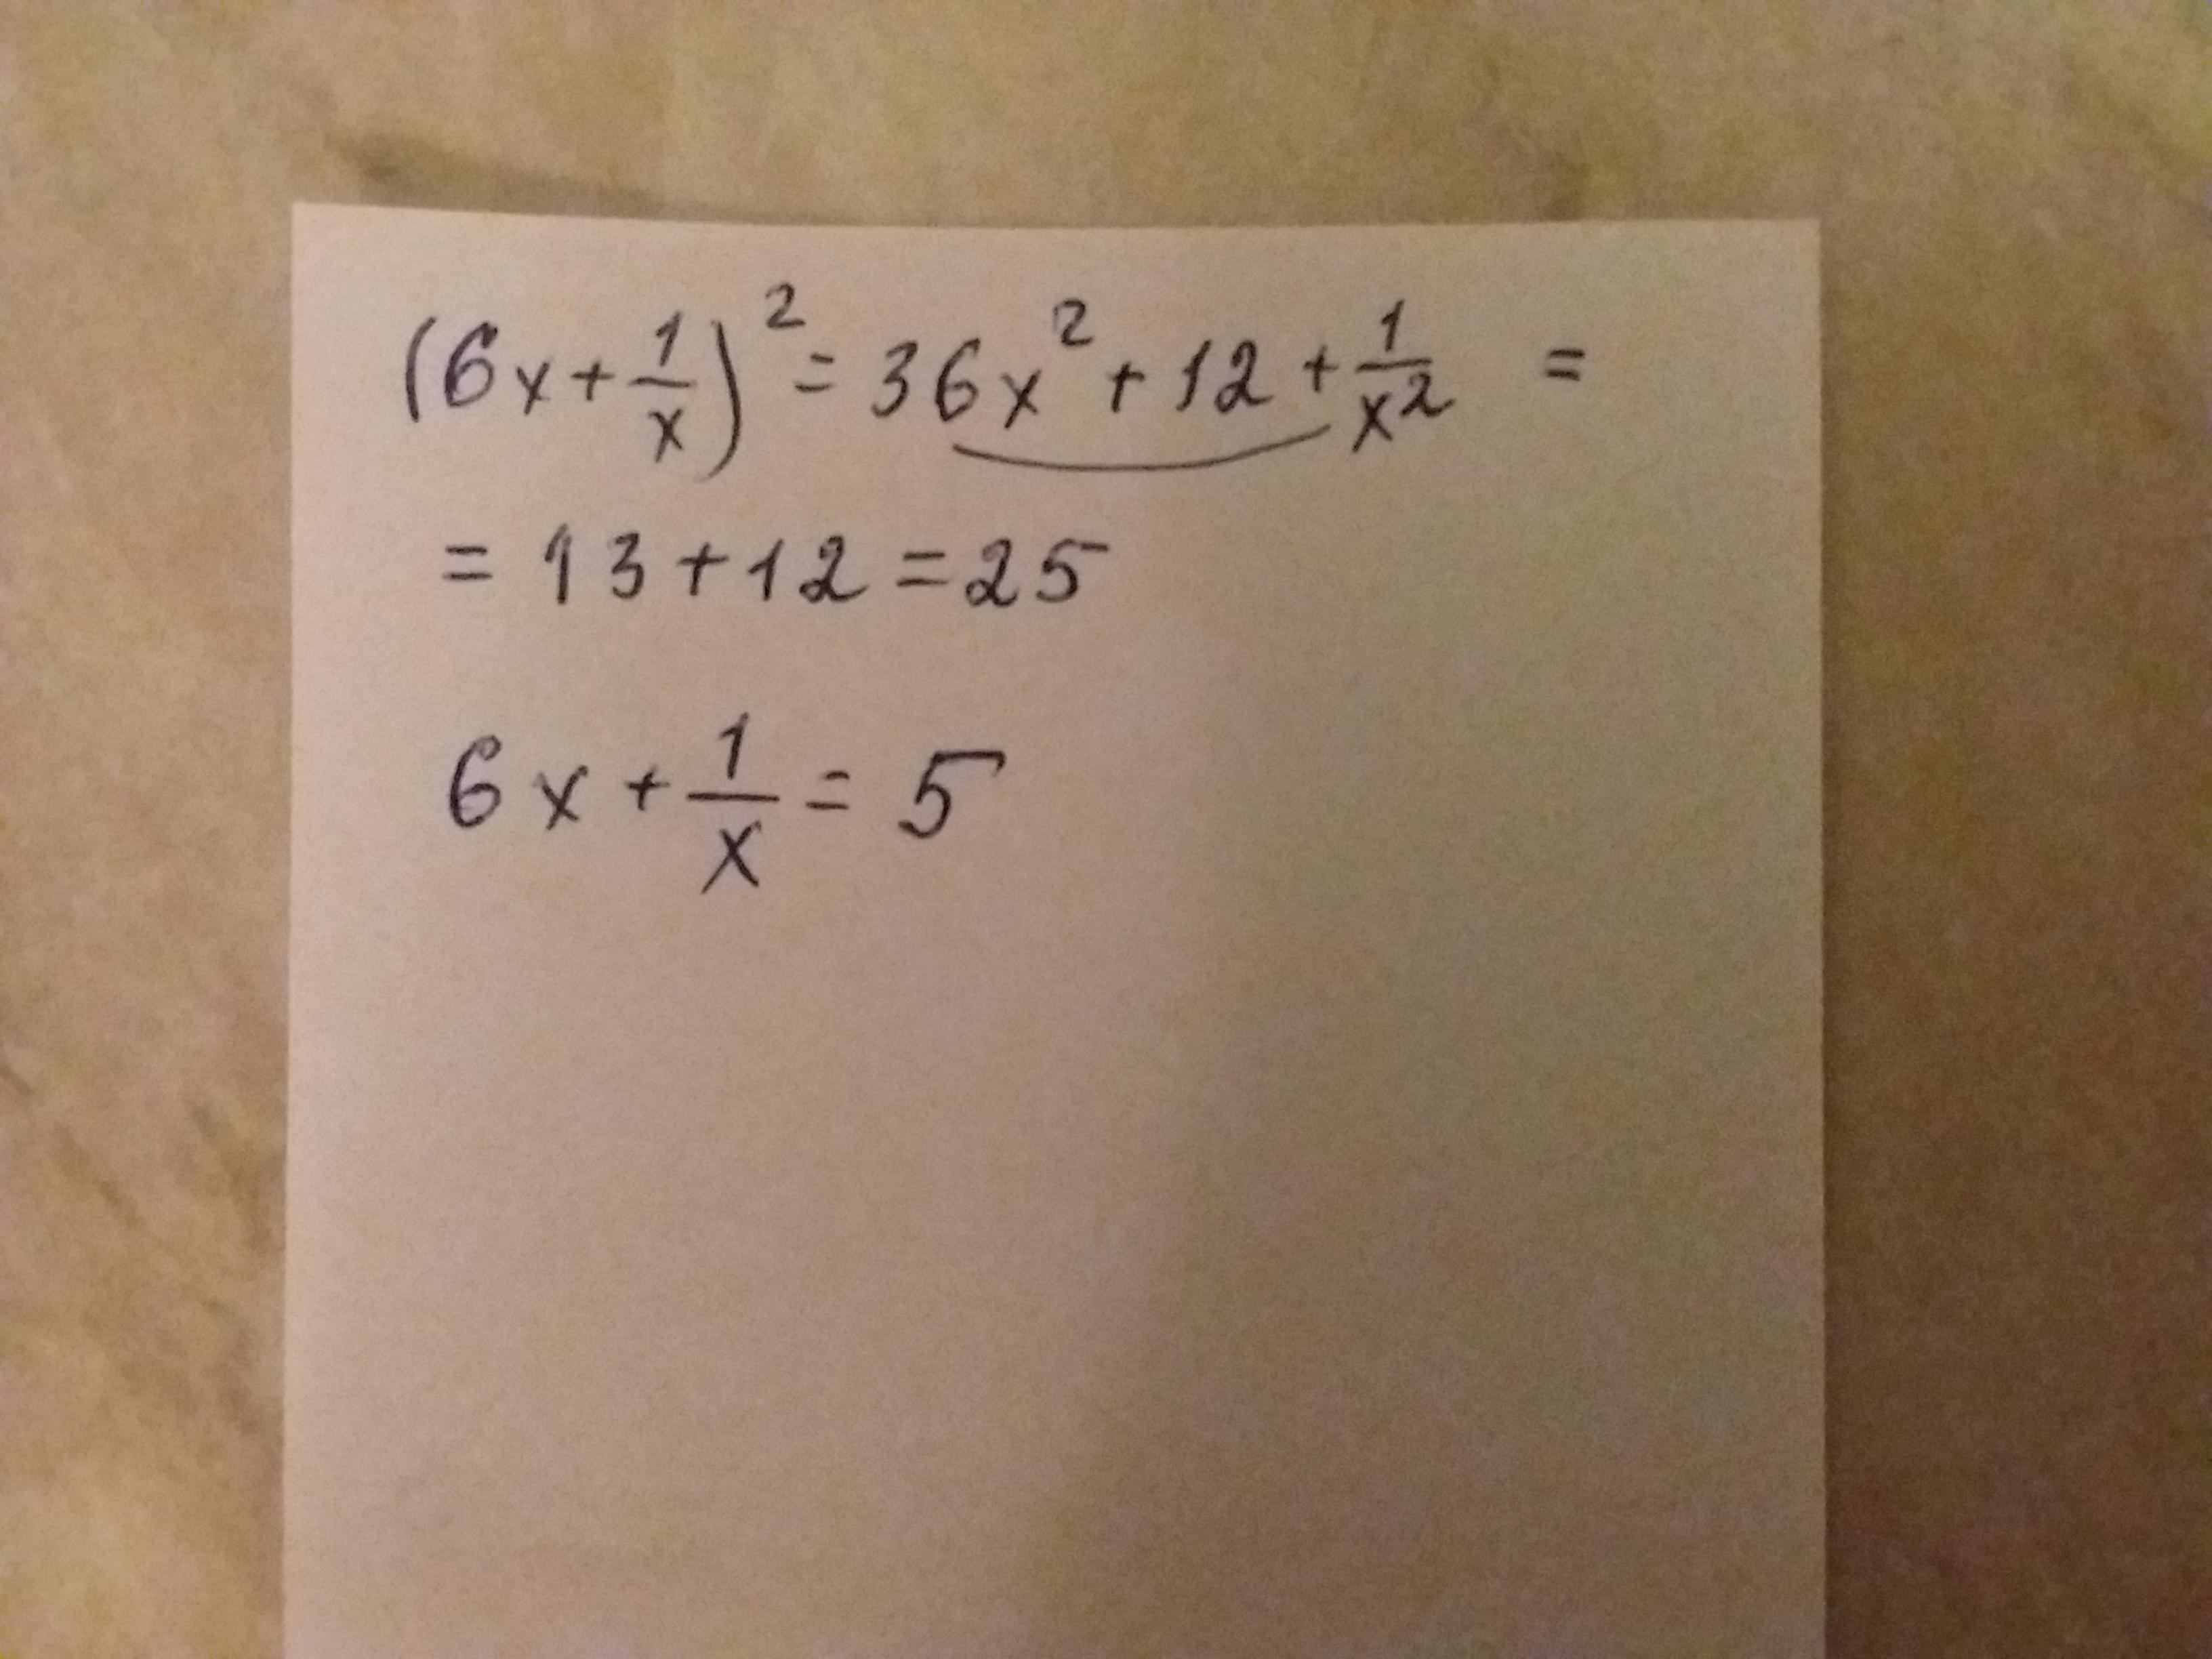 (6x+1/x)²=36x²+12+1/x² =
= 13+12=25
6x+1/x=5